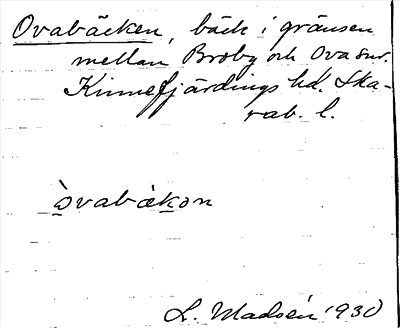 Ovabäcken, bäck i gränsen
mellan Broby och Ova snr.
Kinnefjärdings hd. Ska-
rab. l.
òvabäkən
L. Madsén 1930